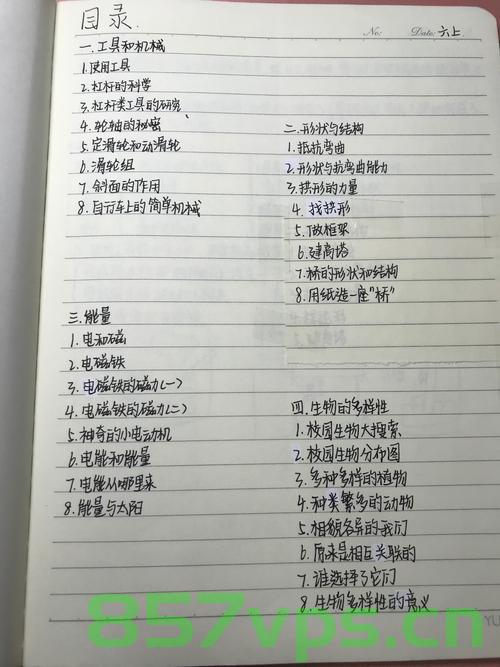 目录
No:
Date: 六上
一.工具和机械
1.使用工具
2.杠杆的科学
3.杠杆类工具的研究
4.轮轴的秘密
5.定滑轮和动滑轮
6.滑轮组
7.斜面的作用
8.自行车上的简单机械
二.形状与结构
1.抵抗弯曲
2.形状与抗弯曲能力
3.拱形的力量
4.找拱形
5.做框架
6.建高塔
7.桥的形状和结构
8.用纸造一座"桥"
三.能量
1.电和磁
2.电磁铁
3.电磁铁的磁力(一)
4.电磁铁的磁力(二)
5.神奇的小电动机
6.电能和能量
7.电能从哪里来
8.能量与太阳
四.生物的多样性
1.校园生物大搜索
2.校园生物分布图
3.多种多样的植物
4.种类繁多的动物
5.相貌各异的我们
6.原来是相互关联的
7.谁选择了它们
8.生物多样性的意义
857vps.cn